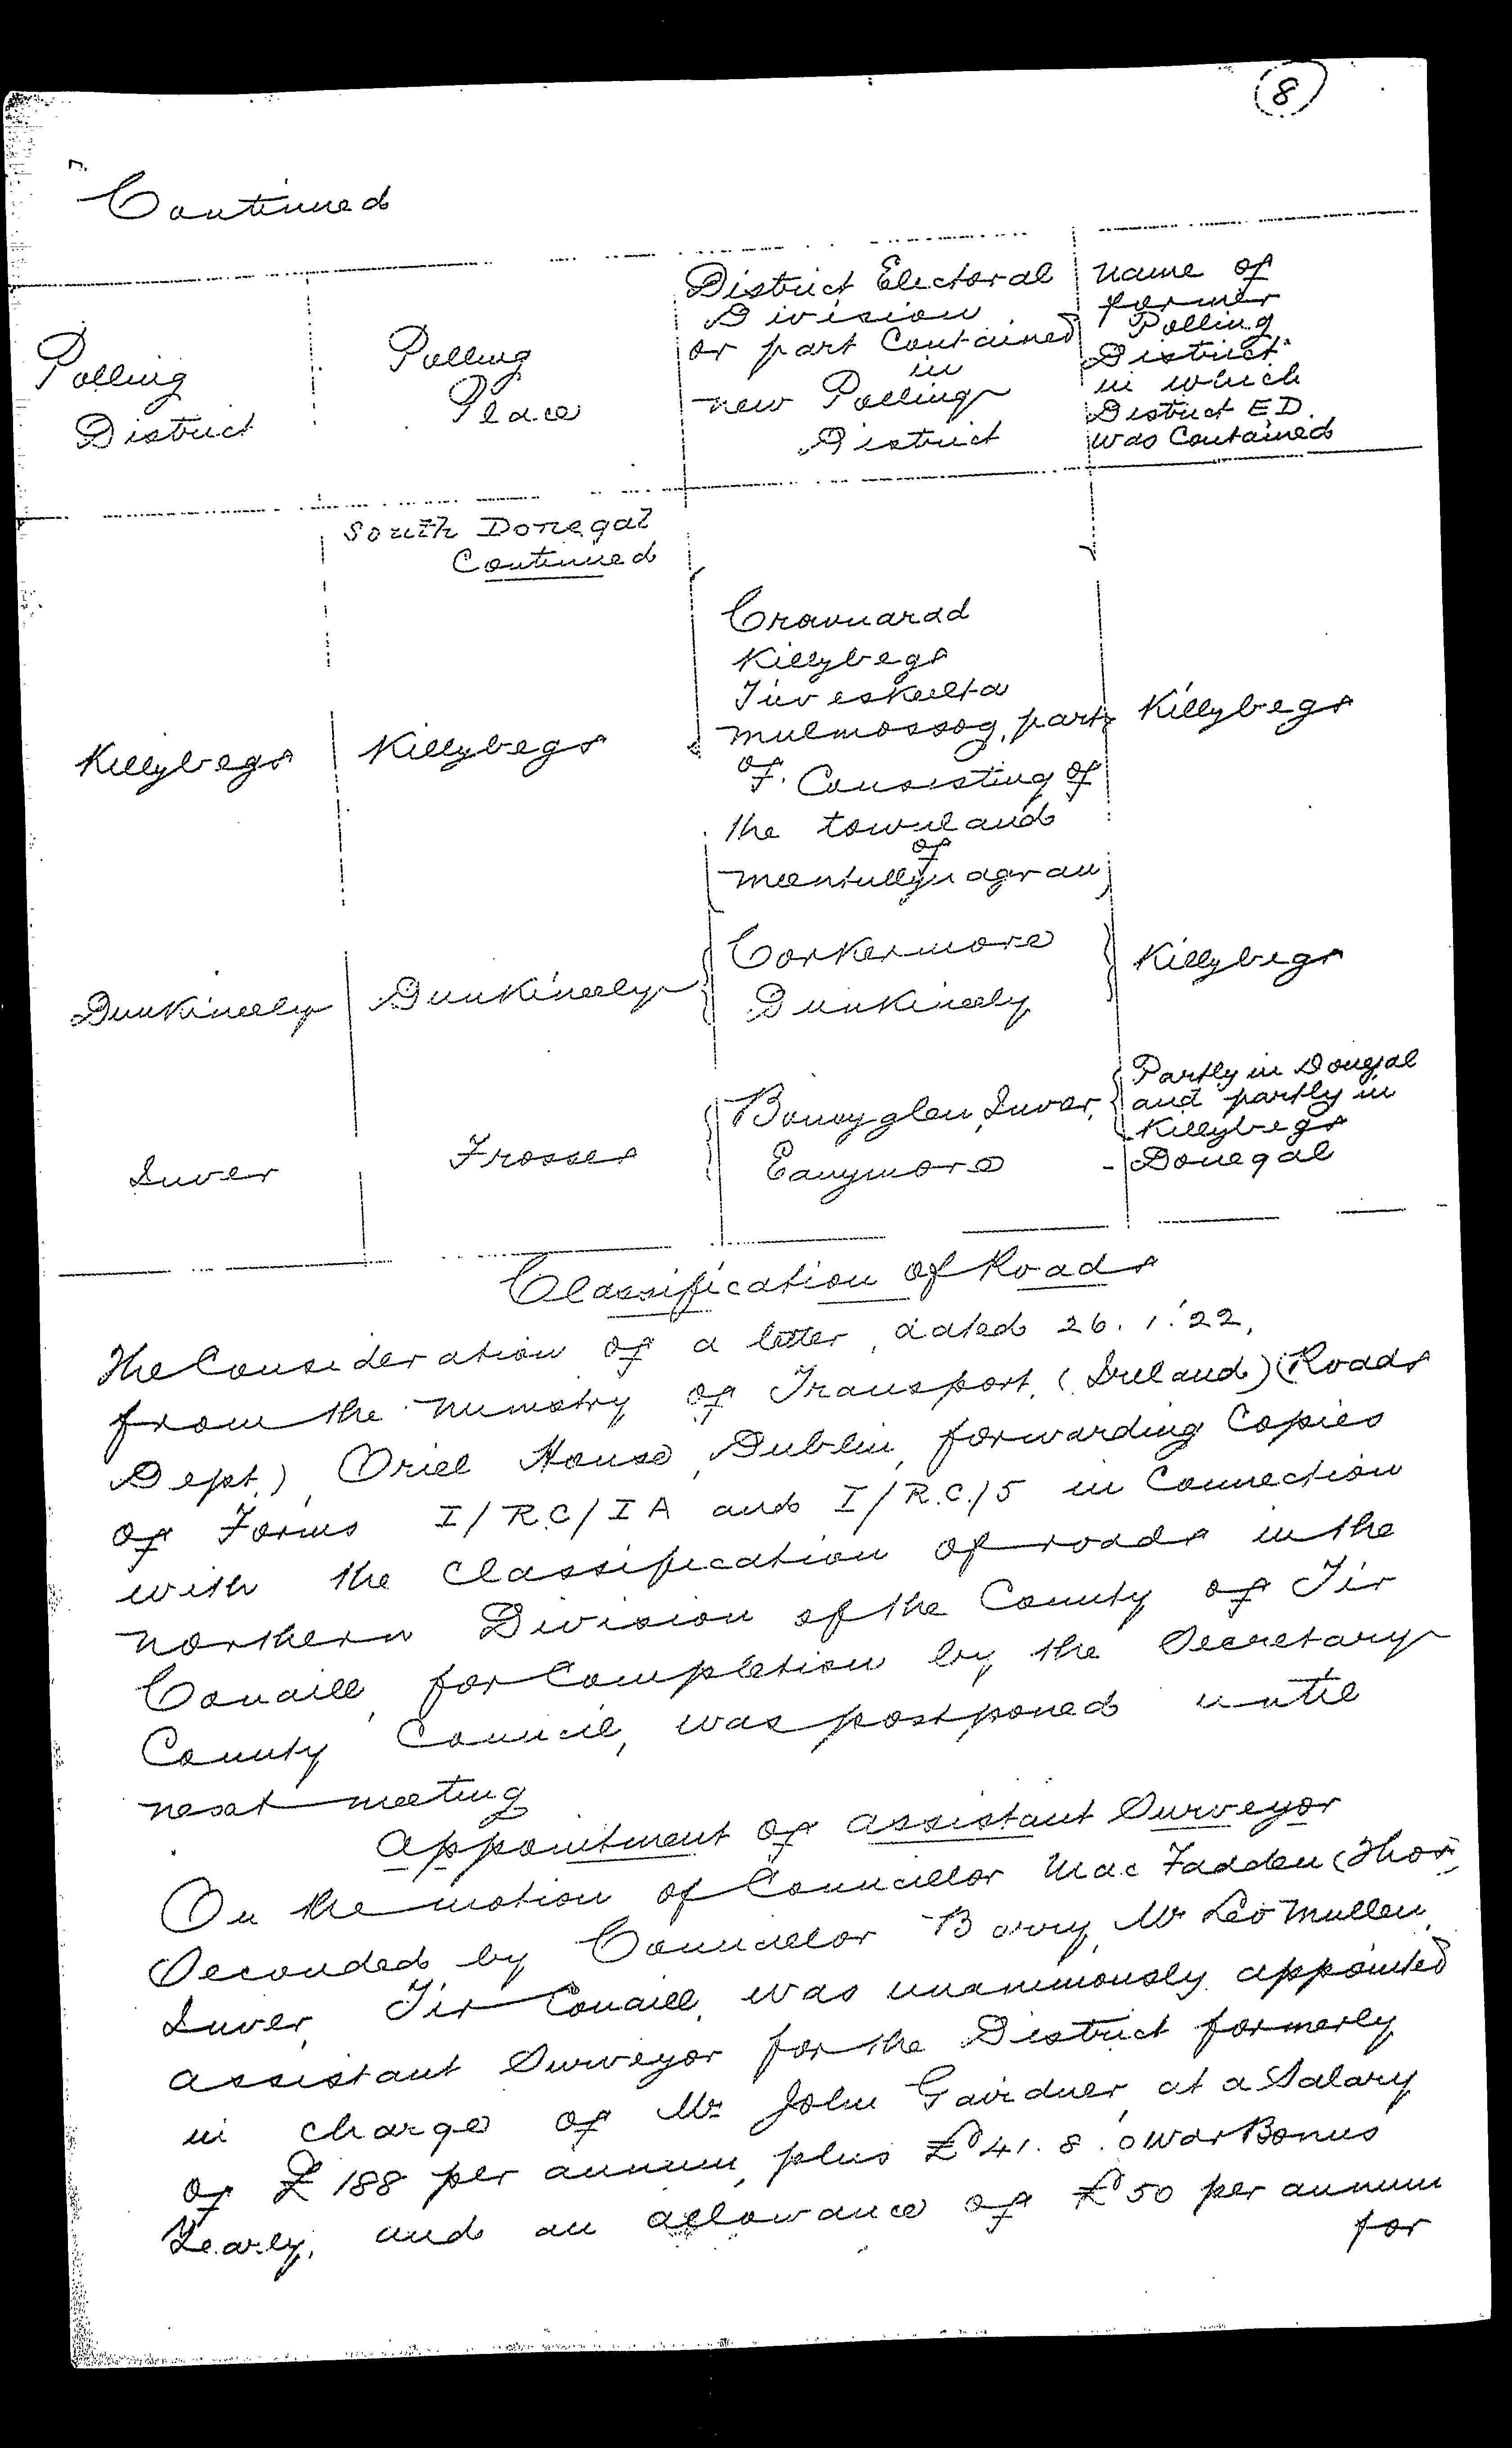 8
Continued
Polling
District
Polling
Place
District Electoral
Division
or part Contained
in
new Polling
District
name of
former
Polling
District
in which
District ED.
was Contained
South Donegal
Continued
Killybegs
Killybegs
Crovnarad
Killybegs
Tieveskeelta
Mulmossog, part
of. Consisting of
the townland
of
Meentullynagran
Killybegs
Dunkineely
Dunkineely
Corkermore
Dunkineely
Killybegs
Inver
Frosses
Bonnyglen, Inver,
Eanymore
Partly in Donegal
and partly in
Killybegs
- Donegal
Classification of Roads
The Consideration of a letter, dated 26.1.'22,
from the Ministry of Transport, (Ireland) (Roads
Dept.), Oriel House, Dublin, forwarding Copies
of Forms I/R.C/IA and I/R.C./5 in Connection
with the Classification of roads in the
northern Division of the County of Tir
Conaill, for Completion by the Secretary
County Council, was postponed until
next meeting
Appointment of Assistant Surveyor
On the motion of Councillor MacFadden (Thos)
Seconded by Councillor Barry, Mr Leo Mullen,
Inver, Tir Conaill, was unanimously appointed
assistant Surveyor for the District formerly
in charge of Mr John Gairdner, at a Salary
of £188 per annum, plus £41.8.0 War Bonus
Yearly, and an allowance of £50 per annum
for